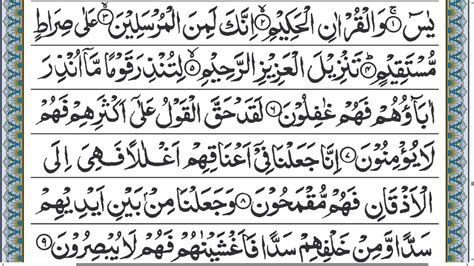 يٰسٓ ۝١ وَالْقُرْاٰنِ الْحَكِيْمِ ۝٢ اِنَّكَ لَمِنَ الْمُرْسَلِيْنَ ۝٣ عَلٰى صِرَاطٍ
مُّسْتَقِيْمٍ ۝٤ تَنْزِيْلَ الْعَزِيْزِ الرَّحِيْمِ ۝٥ لِتُنْذِرَ قَوْمًا مَّآ اُنْذِرَ
اٰبَآؤُهُمْ فَهُمْ غٰفِلُوْنَ ۝٦ لَقَدْ حَقَّ الْقَوْلُ عَلٰٓى اَكْثَرِهِمْ فَهُمْ
لَا يُؤْمِنُوْنَ ۝٧ اِنَّا جَعَلْنَا فِيْٓ اَعْنَاقِهِمْ اَغْلٰلًا فَهِيَ اِلَى
الْاَذْقَانِ فَهُمْ مُّقْمَحُوْنَ ۝٨ وَجَعَلْنَا مِنْۢ بَيْنِ اَيْدِيْهِمْ
سَدًّا وَّمِنْ خَلْفِهِمْ سَدًّا فَاَغْشَيْنٰهُمْ فَهُمْ لَا يُبْصِرُوْنَ ۝٩